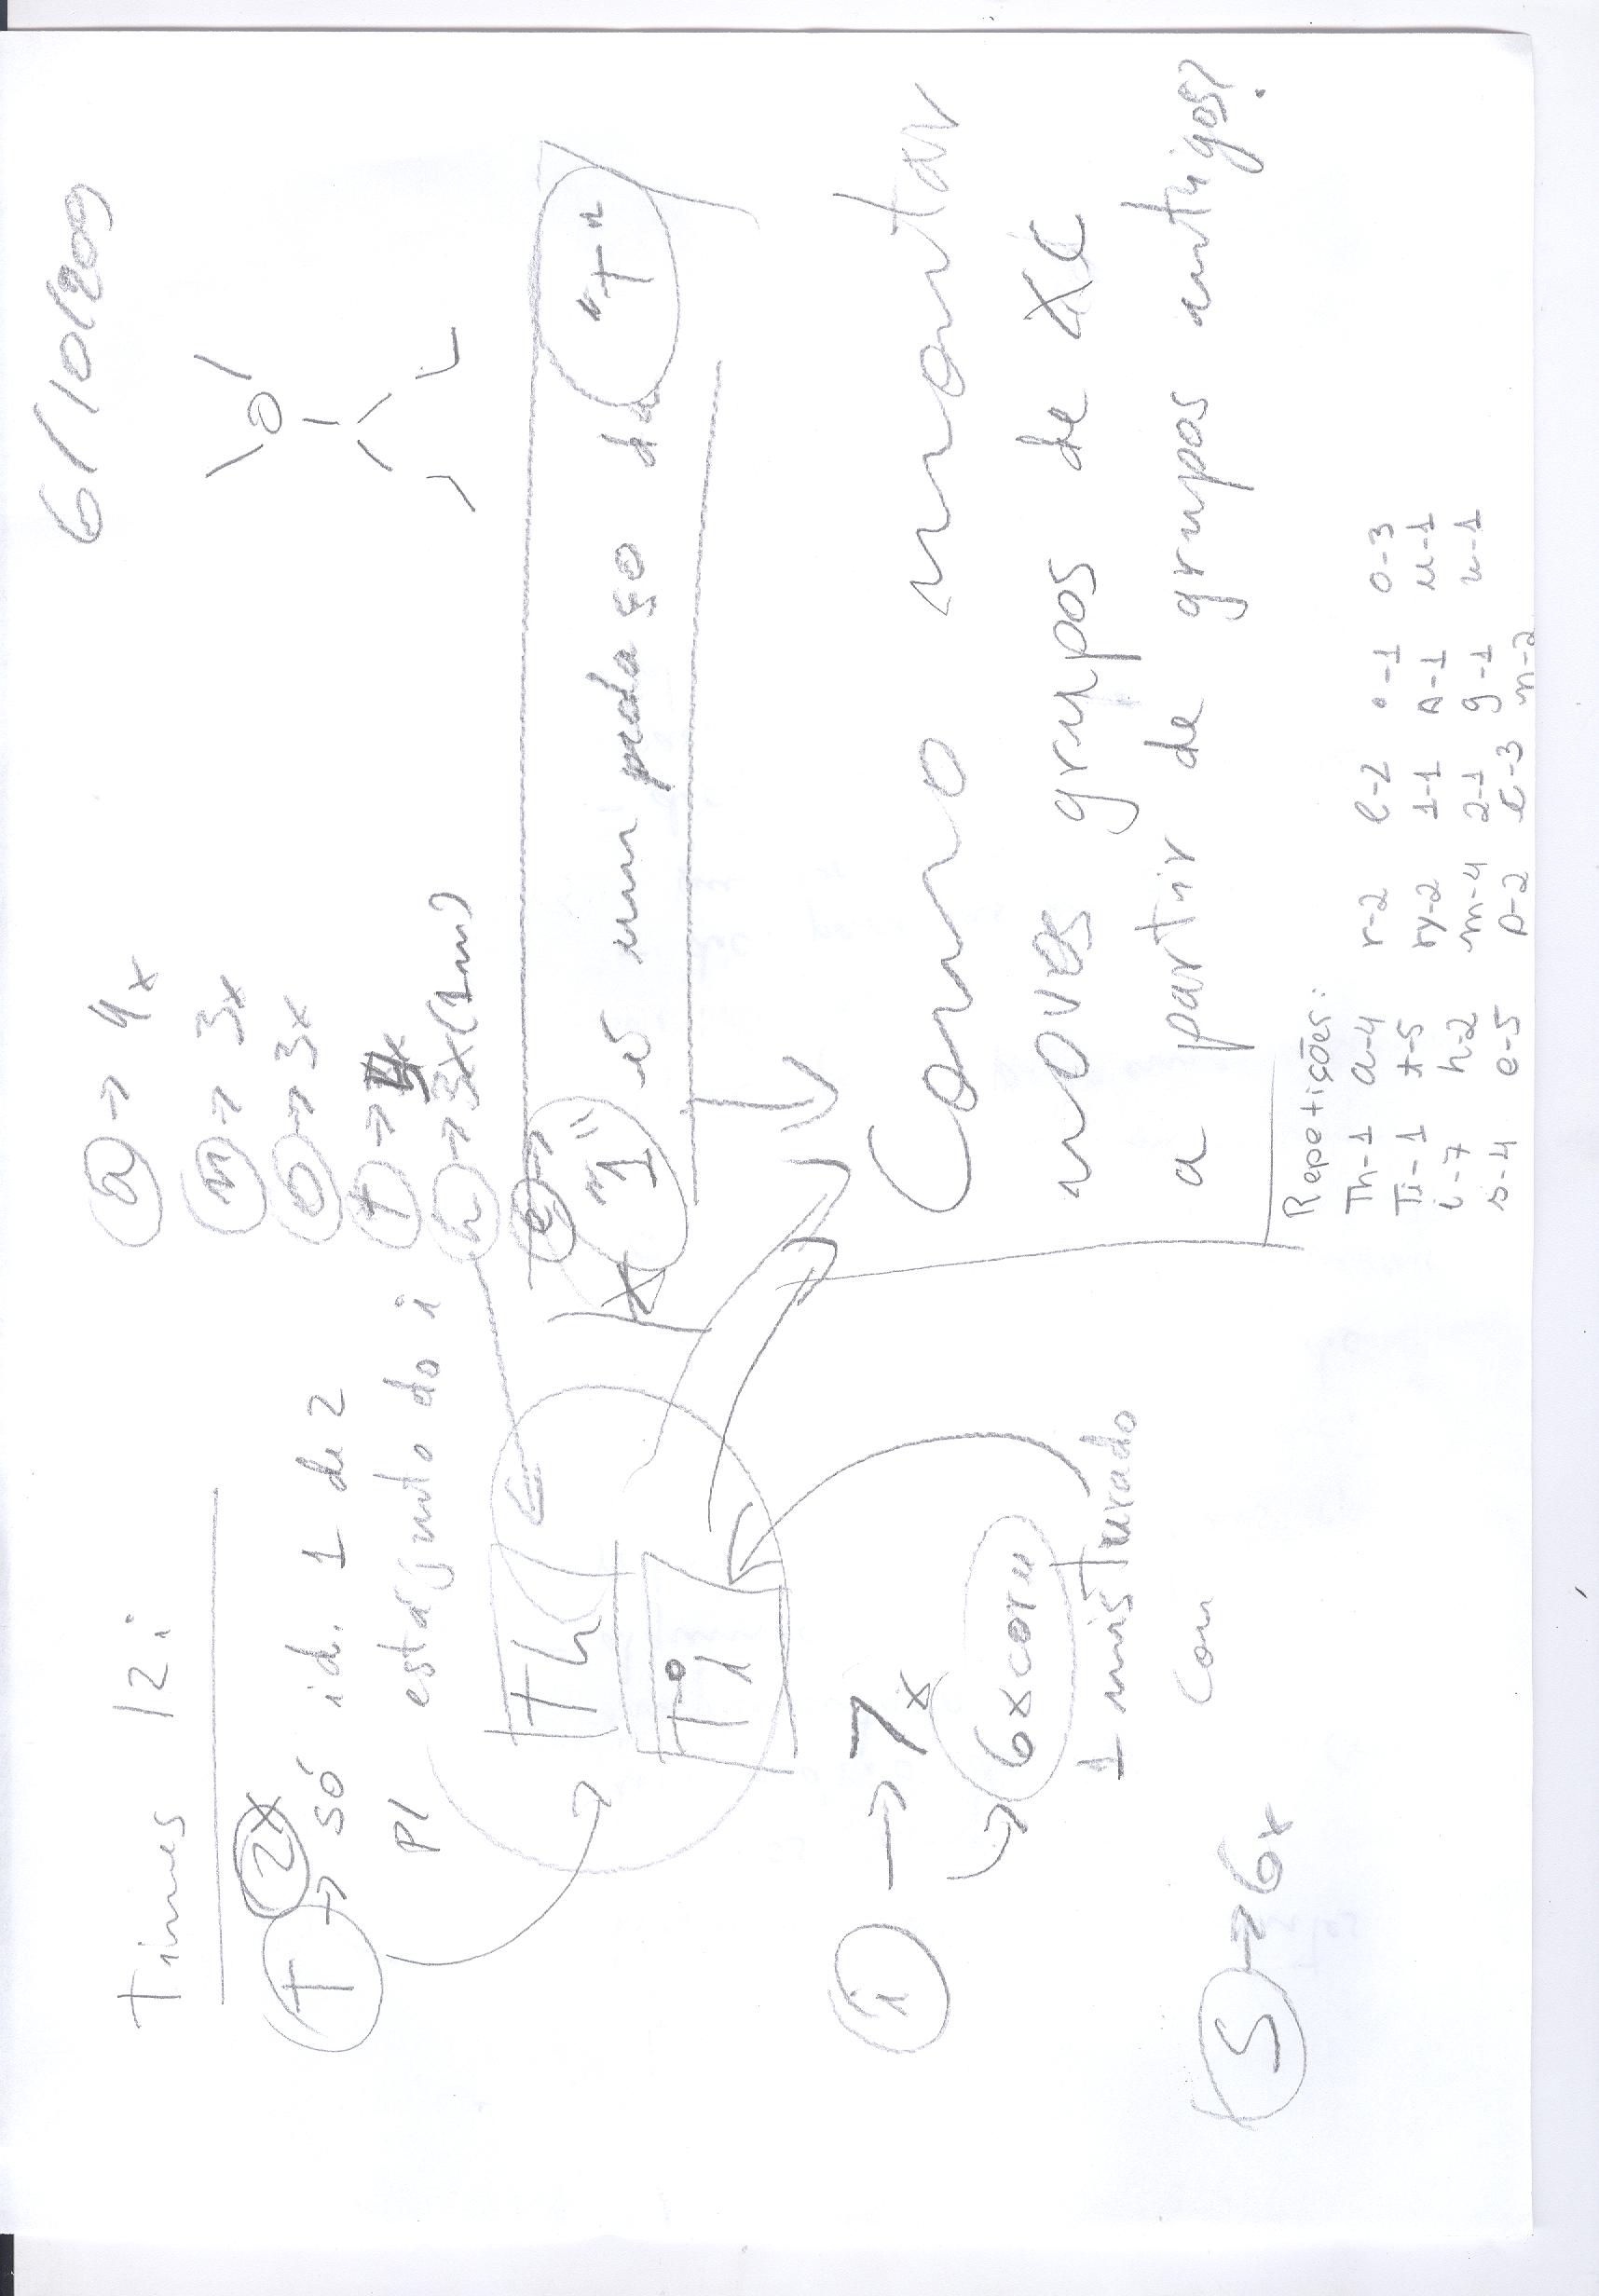 6/10/209
Times 12i
T 2x
→ só id. 1 de 2
p/ está junto do i
Th
Ti
i → 7x
6x com
1 misturado
com
S → 6x
a → 4x
n → 3x
o → 3x
t →
h → 3x (1m)
e →
"1" é um pedaço da "t"
Como montar
novos grupos de
a partir de grupos antigos?
Repetições:
Th-1 a-4 r-2 l-2 •-1 o-3
Ti-1 t-5 ry-2 1-1 A-1 u-1
i-7 h-2 m-4 2-1 g-1 u-1
s-4 e-5 p-2 c-3 n-2